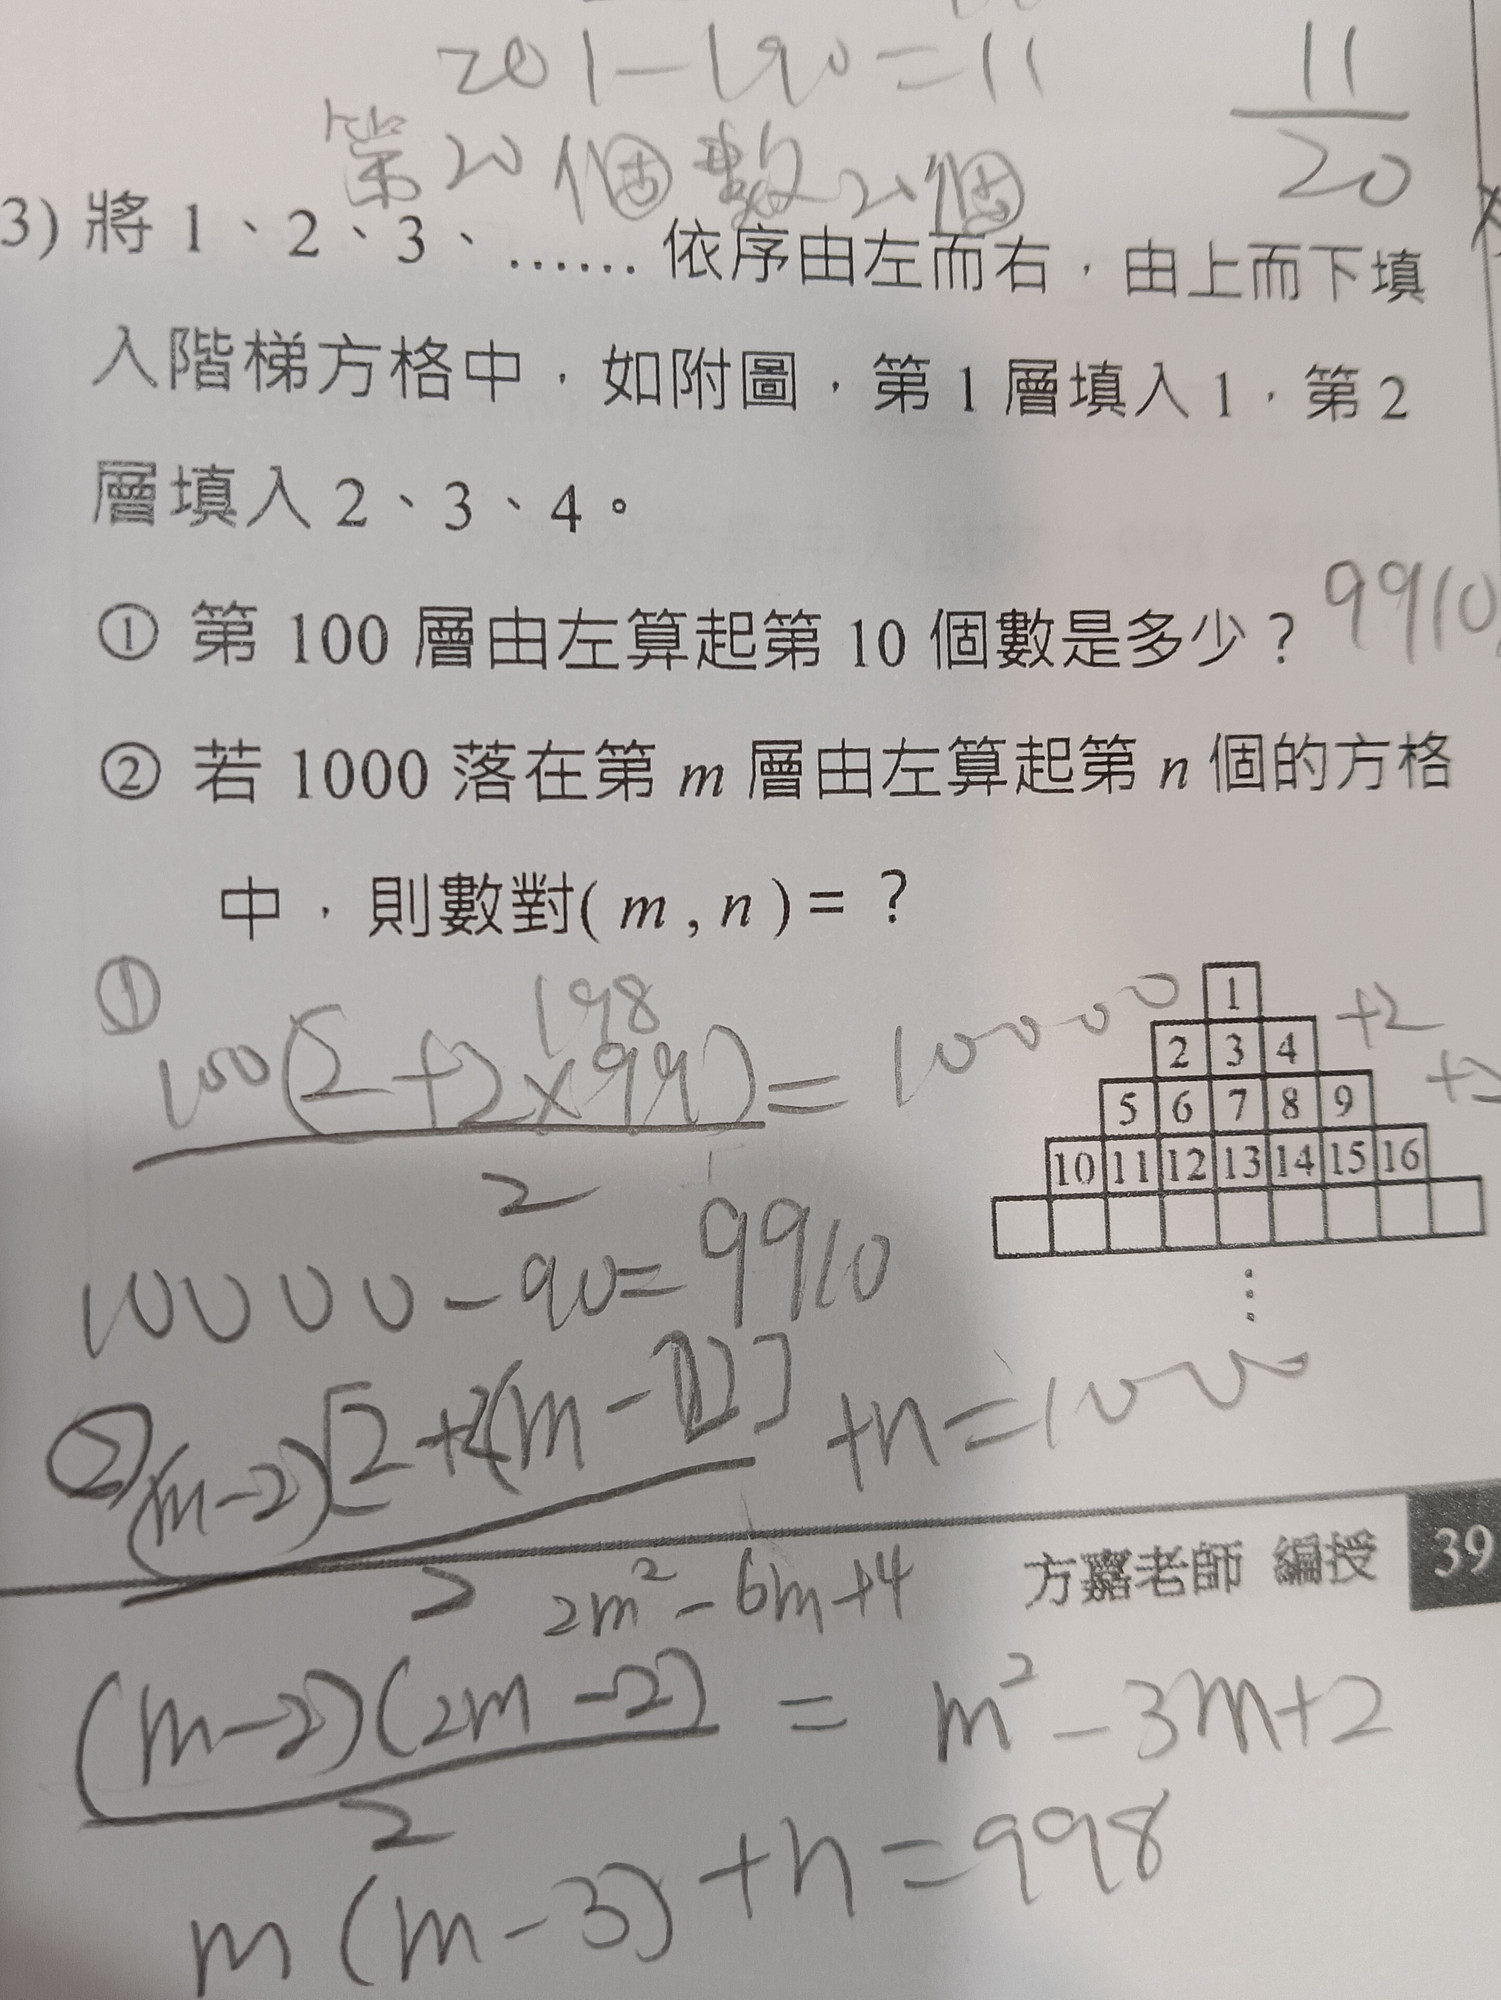 201-190=11
11
20
第20個數20個
3) 將 1、2、3、……依序由左而右，由上而下填
入階梯方格中，如附圖，第 1 層填入 1，第 2
層填入 2、3、4。
① 第 100 層由左算起第 10 個數是多少？ 9910
② 若 1000 落在第 m 層由左算起第 n 個的方格
中，則數對( m , n ) = ？
①
198
100(2+2×99) = 10000
2
1
+2
2 3 4
5 6 7 8 9
10 11 12 13 14 15 16
⋮
10000-90=9910
② (m-2)[2+2(m-2)] +n=1000
2
方嘉老師 編授 39
2m²-6m+4
(m-2)(2m-2) = m²-3m+2
2
m(m-3)+n=998